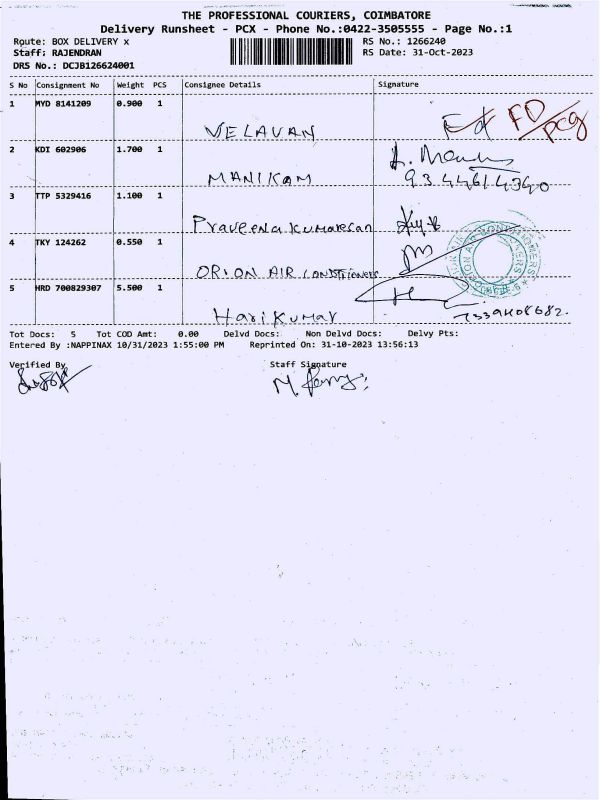 THE PROFESSIONAL COURIERS, COIMBATORE
Delivery Runsheet - PCX - Phone No.:0422-3505555 - Page No.:1
Route: BOX DELIVERY x
RS No.: 1266240
Staff: RAJENDRAN
RS Date: 31-Oct-2023
DRS No.: DCJB126624001
S No Consignment No Weight PCS Consignee Details Signature
1 MYD 8141209 0.900 1
VELAVAN
FD/pcg
2 KDI 602906 1.700 1
MANIKAM
9344614340
3 TTP 5329416 1.100 1
Praveena Kumaresan
4 TKY 124262 0.550 1
ORION AIR
5 HRD 700829307 5.500 1
Hari Kumar
Tot Docs: 5 Tot COD Amt: 0.00 Delvd Docs: Non Delvd Docs: Delvy Pts:
Entered By :NAPPINAX 10/31/2023 1:55:00 PM Reprinted On: 31-10-2023 13:56:13
Verified By
Staff Signature